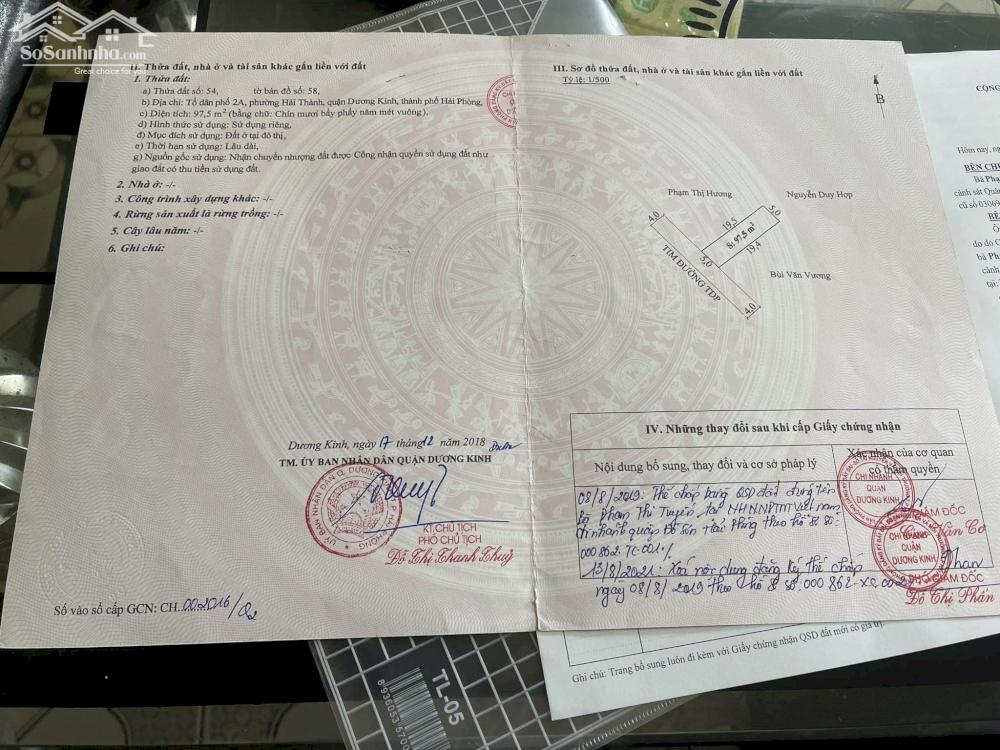 SoSanhnha.com
Great choice for you
II. Thửa đất, nhà ở và tài sản khác gắn liền với đất
1. Thửa đất:
a) Thửa đất số: 54, tờ bản đồ số: 58,
b) Địa chỉ: Tổ dân phố 2A, phường Hải Thành, quận Dương Kinh, thành phố Hải Phòng,
c) Diện tích: 97,5 m² (bằng chữ: Chín mươi bảy phẩy năm mét vuông),
d) Hình thức sử dụng: Sử dụng riêng,
đ) Mục đích sử dụng: Đất ở tại đô thị,
e) Thời hạn sử dụng: Lâu dài,
g) Nguồn gốc sử dụng: Nhận chuyển nhượng đất được Công nhận quyền sử dụng đất như
giao đất có thu tiền sử dụng đất.
2. Nhà ở: -/-
3. Công trình xây dựng khác: -/-
4. Rừng sản xuất là rừng trồng: -/-
5. Cây lâu năm: -/-
6. Ghi chú:
Dương Kinh, ngày 17 tháng 12 năm 2018
TM. ỦY BAN NHÂN DÂN QUẬN DƯƠNG KINH
KT. CHỦ TỊCH
PHÓ CHỦ TỊCH
Đỗ Thị Thanh Thuỷ
Số vào sổ cấp GCN: CH.002016/Q2
III. Sơ đồ thửa đất, nhà ở và tài sản khác gắn liền với đất
Tỷ lệ: 1/500
B
Phạm Thị Hương
Nguyễn Duy Hợp
4,0
19,5
5,0
S: 97,5 m²
5,0
19,4
TIM ĐƯỜNG TDP
Bùi Văn Vương
4,0
IV. Những thay đổi sau khi cấp Giấy chứng nhận
Nội dung bổ sung, thay đổi và cơ sở pháp lý
Xác nhận của cơ quan
có thẩm quyền
08/8/2019: Thế chấp bằng QSD đất đứng tên
bà Phạm Thị Tuyên tại NHNNPTNT Việt nam
chi nhánh quận Đồ Sơn Hải Phòng theo hồ sơ số:
000862.TC.001./
13/8/2021: Xoá nội dung đăng ký thế chấp
ngày 08/8/2019 theo hồ sơ số.000862-XC.00
CHI NHÁNH
QUẬN
DƯƠNG KINH
GIÁM ĐỐC
Văn Cơ
CHI NHÁNH
QUẬN
DƯƠNG KINH
PHÓ GIÁM ĐỐC
Đỗ Thị Phấn
Ghi chú: Trang bổ sung luôn đi kèm với Giấy chứng nhận QSD đất mới có giá trị.
TL-05
8 936053 5700
CỘNG
Hôm nay, ng
BÊN CHU
Bà Phạ
cảnh sát Quả
cũ số 03069
BÊ
Ô
do do C
bà Ph
cảnh
tại: